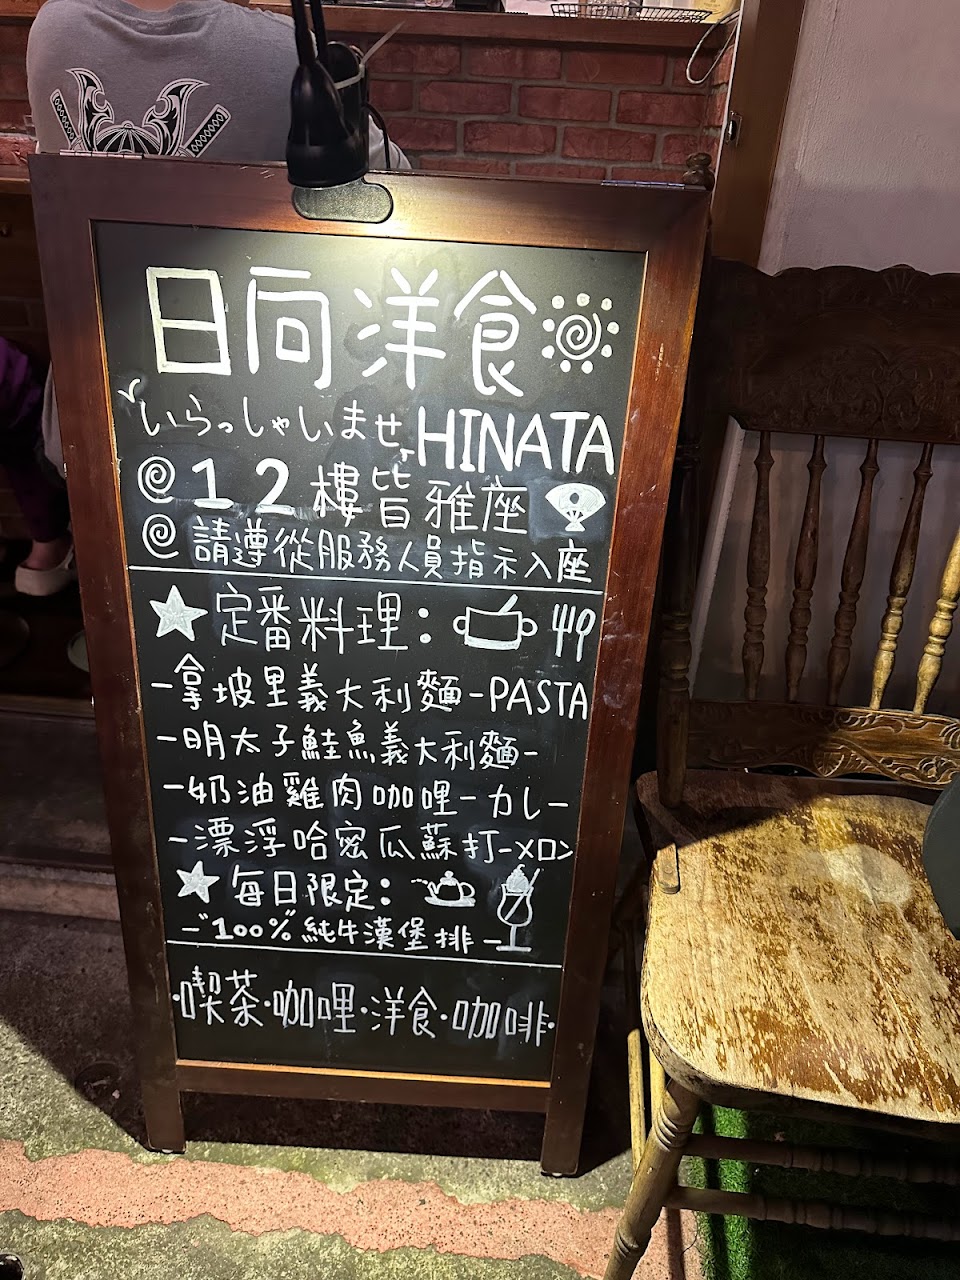 日向洋食
いらっしゃいませ HINATA
1 2 樓皆雅座
請遵從服務人員指示入座
定番料理：
-拿坡里義大利麵-PASTA
-明太子鮭魚義大利麵-
-奶油雞肉咖哩-カレー
-漂浮哈密瓜蘇打-メロン
每日限定：
-"100%"純牛漢堡排-
·喫茶·咖哩·洋食·咖啡·